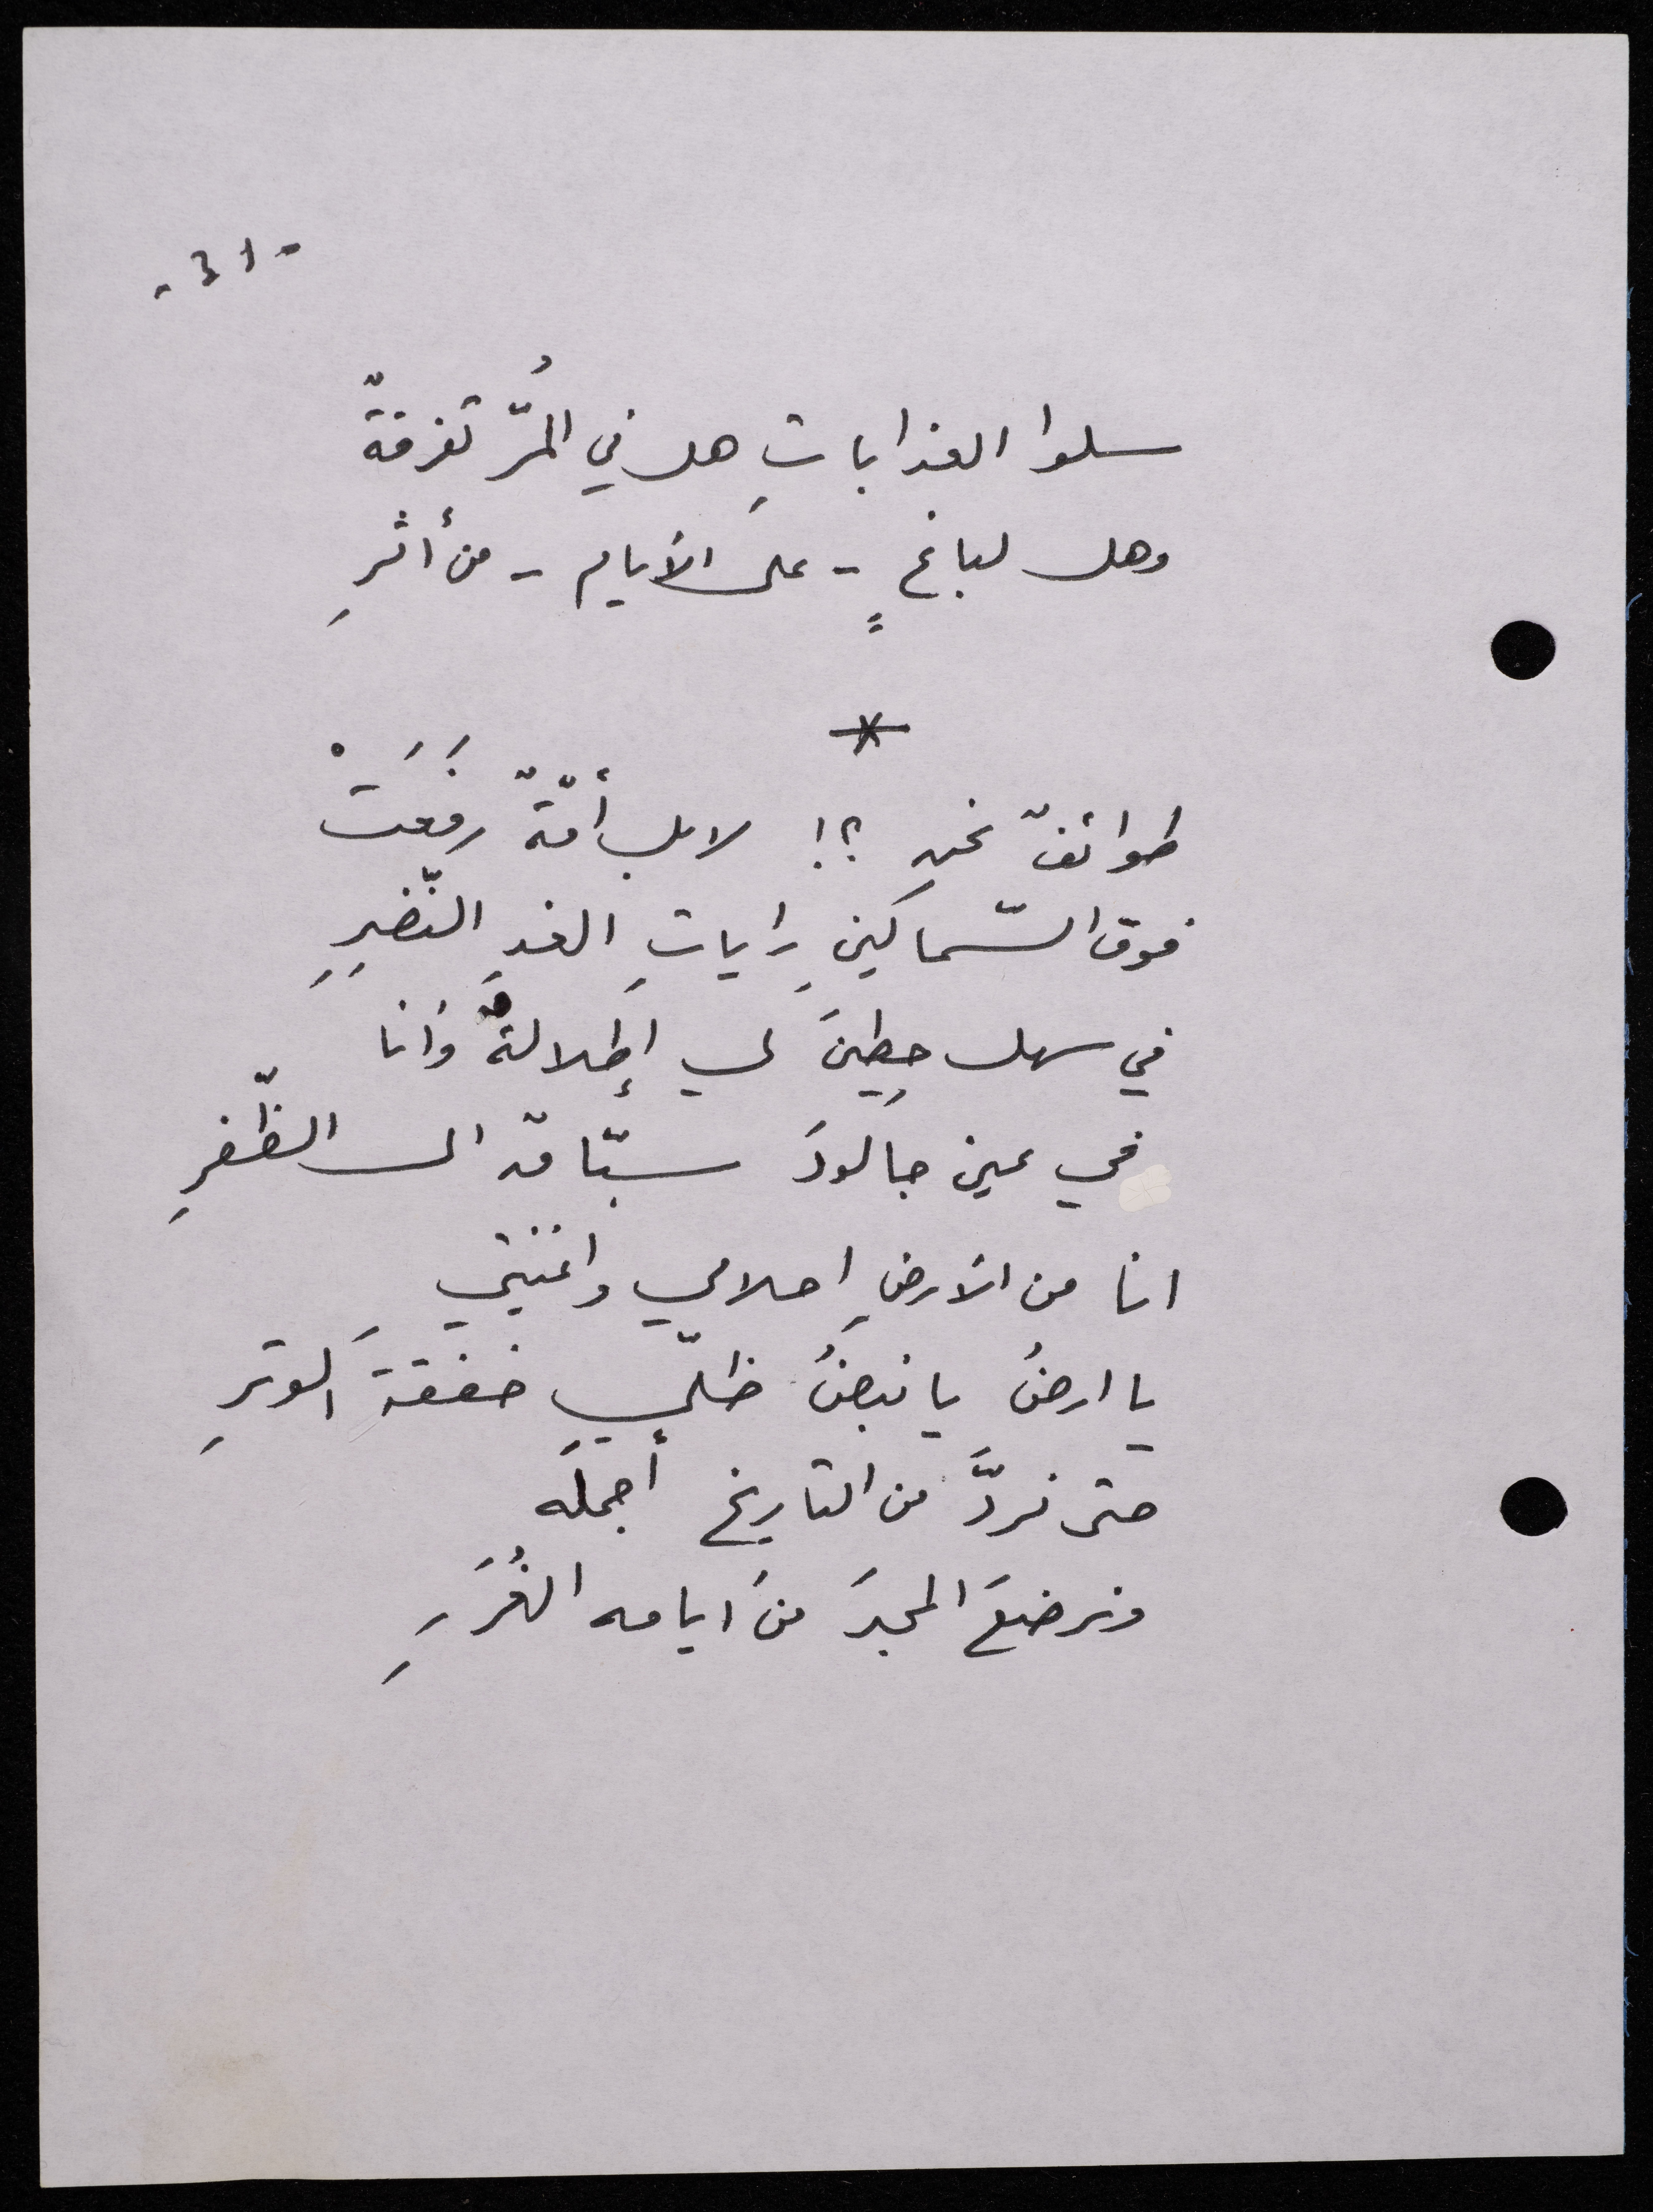 - 31 -
سلوا العذاباتِ هل في المُرّ تفرقةٌ
وهل لباغٍ - على الأيام - من أثرِ
*
طوائفٌ نحن ؟! لا بل أمّةٌ رفَعَتْ
فوق السّماكينِ راياتِ الغدِ النّضِرِ
في سهل حطينَ لي إطلالةٌ وأنا
في عين جالودَ سبّاقه الى الظّفرِ
انا من الأرضِ احلامي واغنيتي
يا ارضُ يا نبضُ ظلّي خفقةَ الوترِ
حتى نردَّ من التاريخ أجملَه
ونرضعَ المجدَ من ايامه الغُرَرِ